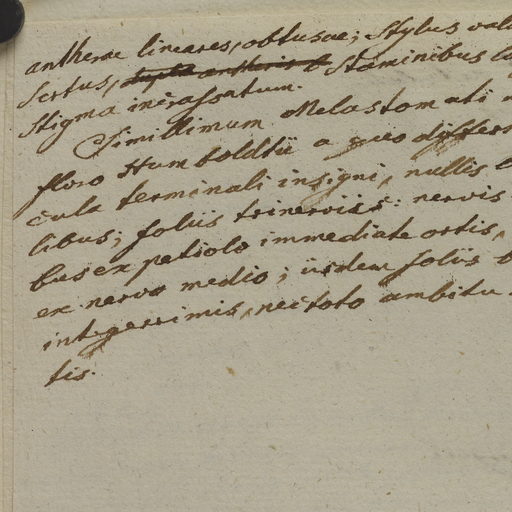 antherae lineares, obtusae; Stylus
sertus, Staminibus
Stigma incrassatum.
Simillimum Melastomati
floro Humboldtii a quo differt
cula terminali insigni, nullis
libus; foliis trinerviis: nervis
bus ex petiolo immediate ortis,
ex nervo medio; iisdem foliis
integerrimis, nec toto ambitu
tis.